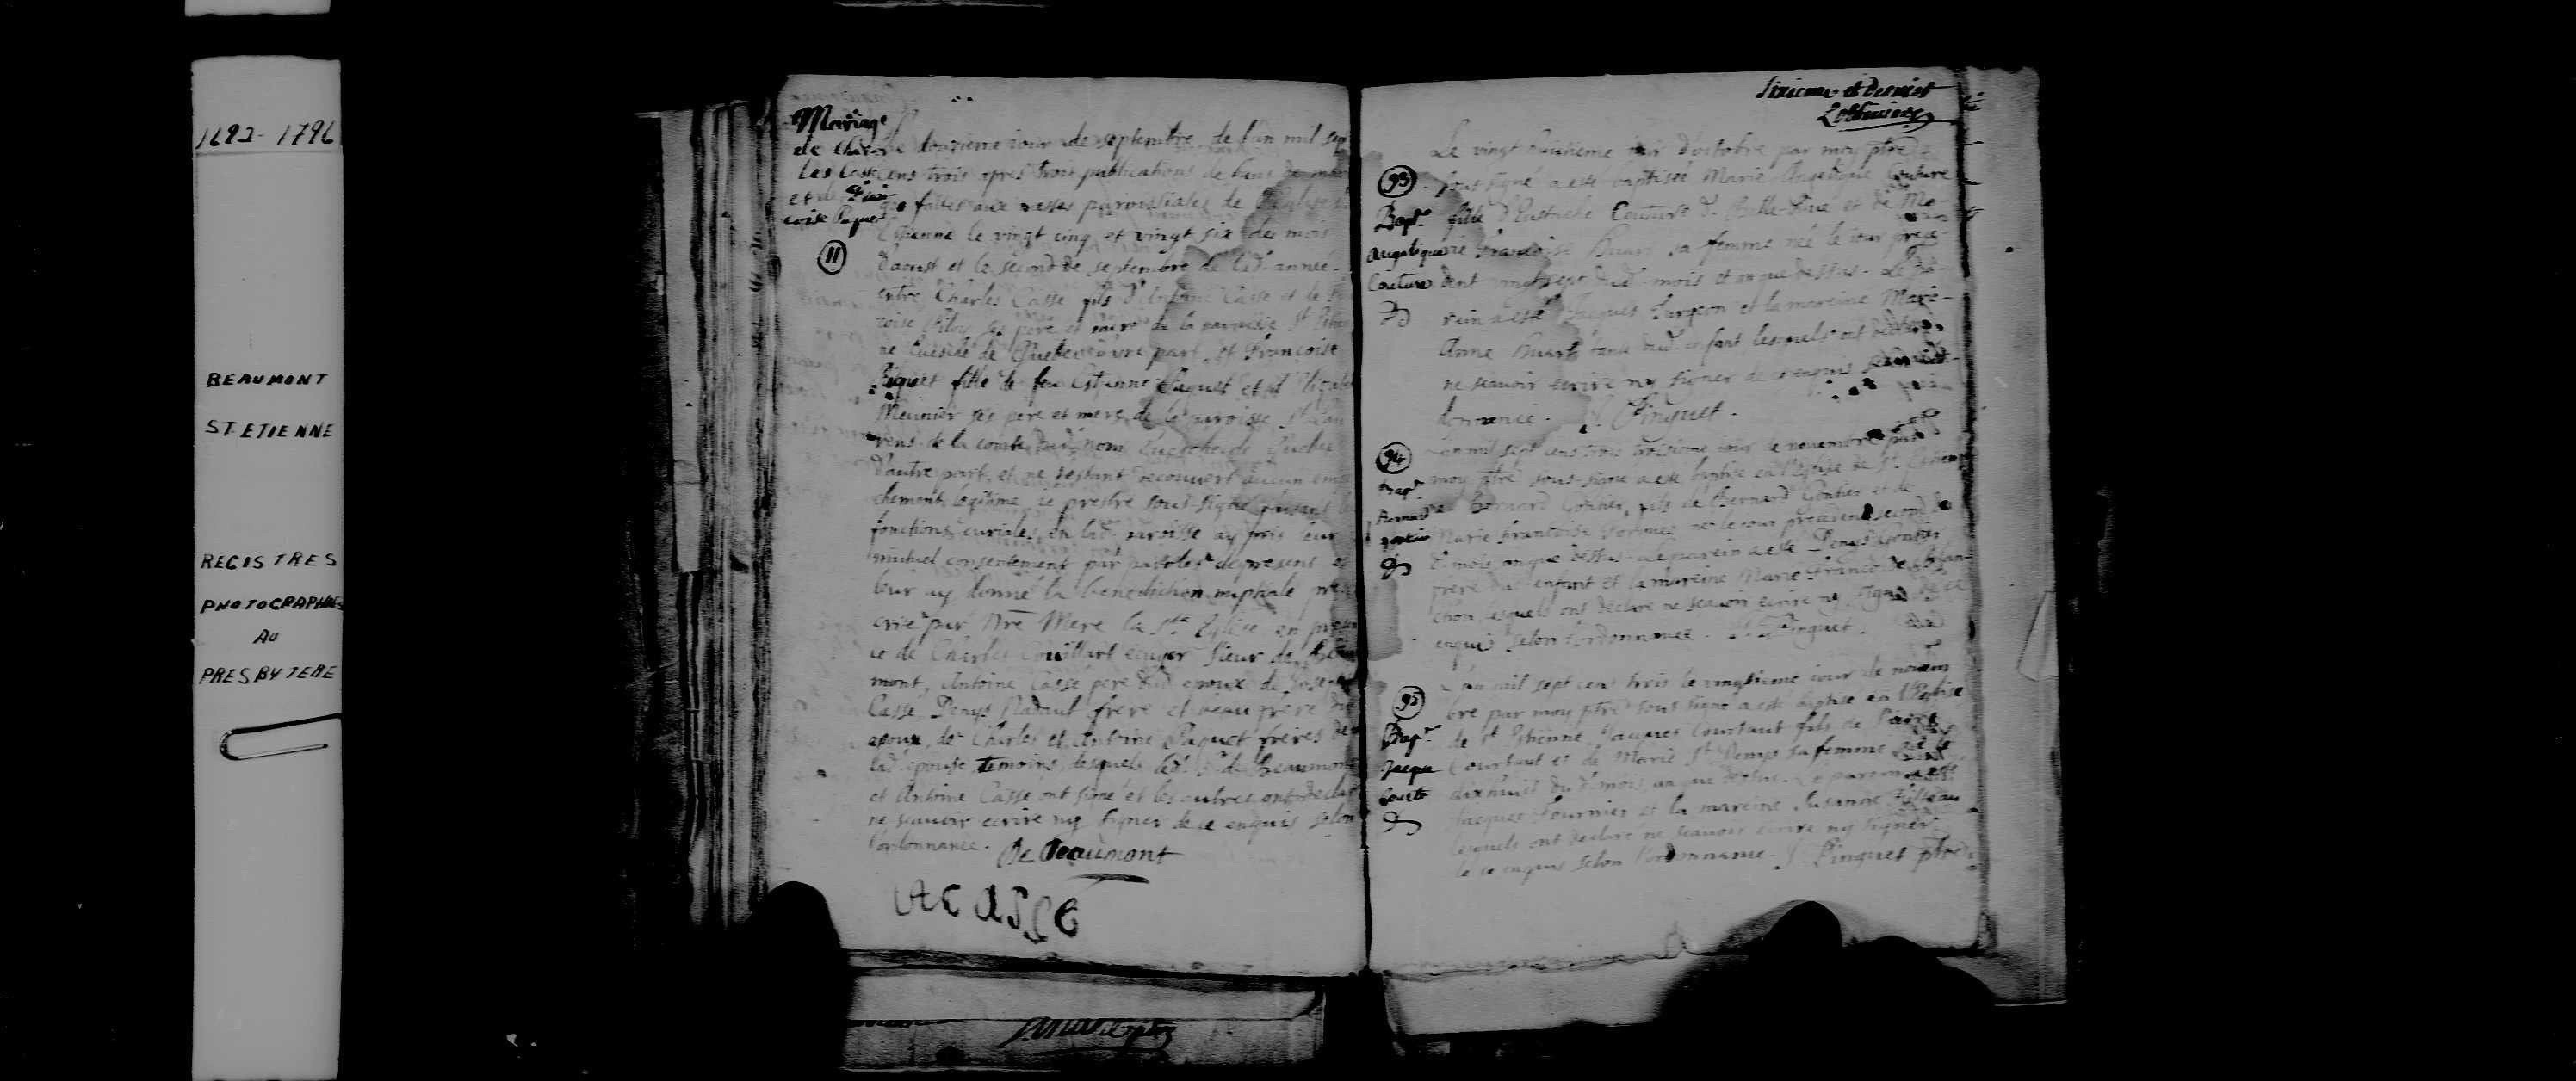 1692-1796
BEAUMONT
ST. ETIENNE
REGISTRES
PHOTOGRAPHIÉS
AU
PRESBYTERE
Mariage
de Charles Casse
et de Fran
coise Paquet
11
Le douzieme iour de septembre de l'an mil sept
cens trois apres trois publications de bans de maria
ges faittes aux messes paroissiales de l'Eglise St
Estienne le vingt cinq et vingt six du mois
d'aoust et le second de septembre de lad. annee.
entre Charles Casse fils d'Antoine Casse et de Fran
coise Piloy ses pere et mere de la paroisse St Estien
ne Evesché de Quebec d'une part, et Francoise
Paquet fille de feu Estienne Paquet et d'Elizabet
Meunier ses pere et mere de la paroisse St Lau
rens de la comté dud. nom Evesché de Quebec
d'autre part, et ne s'estant decouvert aucun empe
chement legitime ie prestre sous-signé faisant les
fonctions curiales en lad. paroisse ay pris leur
mutuel consentement par paroles de present et
leur ay donné la benediction nuptiale pres
crite par Nre Mere la Ste Eglise en presen
ce de Charles Couillart ecuyer Sieur de Beau
mont, Antoine Casse pere dud epoux de Joseph
Casse Denys Nadaut frere et beau frere dud
epoux, de Charles et Antoine Paquet freres de
lad. epouse temoins desquels led. Sr de Beaumont
et Antoine Casse ont signé et les autres ont declaré
ne scavoir ecrire ny signer de ce enquis selon
l'ordonnance. De Beaumont
A C ASSE
Sixieme et dernier
Le vingt huitieme iour d'octobre par moy ptre
93
Bapt.
Angelique
Couture
sous signé a esté baptisée Marie Angelique Couture
fille d'Eustache Couture d. Belle-Rive et de Ma-
rie Francoise Huart sa femme née le iour prece-
dent vingt sept dud. mois et an que dessus. Le pa-
rein a esté Jacques Turgeon et la mareine Marie-
Anne Huart tante dud. enfant lesquels ont declaré
ne scavoir ecrire ny signer de ce enquis
donnance. Pinguet.
94
Bapt.
Bernard
gontier
L'an mil sept cens trois troisieme iour de novembre par
moy ptre sous-signé a esté baptisé en l'Eglise de St. Estien
ne Bernard Gontier, fils de Bernard Gontier et de
Marie Francoise né le iour precedent second du
d. mois an que dessus. Le parein a esté Denys Gontier
frere dud enfant et la mareine Marie Francoise
lesquels ont declaré ne scavoir ecrire ny signer de ce
enquis selon l'ordonnance. Pinguet.
95
Bapt.
Jacque
Courto
L'an mil sept cens trois le vingtieme iour de novem
bre par moy ptre sous signé a esté baptisé en l'Eglise
de St Estienne Jacques Courtaut fils de Pierre
Courtaut et de Marie St Denys sa femme né le
dixhuit du d. mois an que dessus. Le parein a esté
Jacques Fournier et la mareine Susanne
lesquels ont declaré ne scavoir ecrire ny signer
de ce enquis selon l'ordonnance. Pinguet ptre